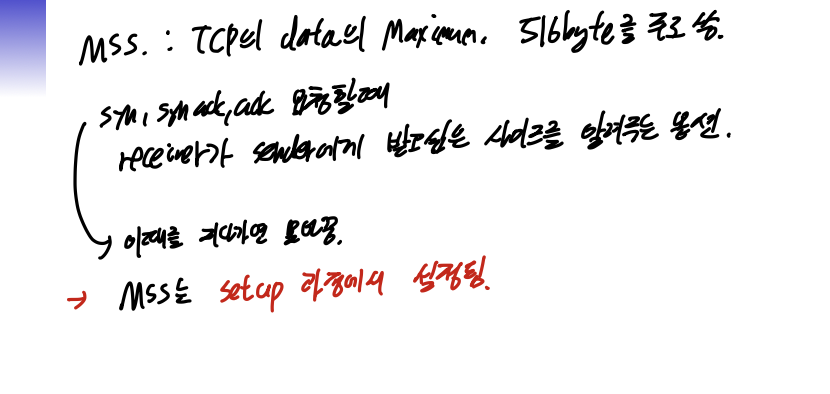 MSS. : TCP의 data의 Maximum. 516byte를 주로 씀.
syn, syn ack, ack 요청할때
receiver가 sender에게 받고싶은 사이즈를 알려주는 옵션.
이때를 지나가면 못바꿈.
→ MSS는 setup 과정에서 설정됨.